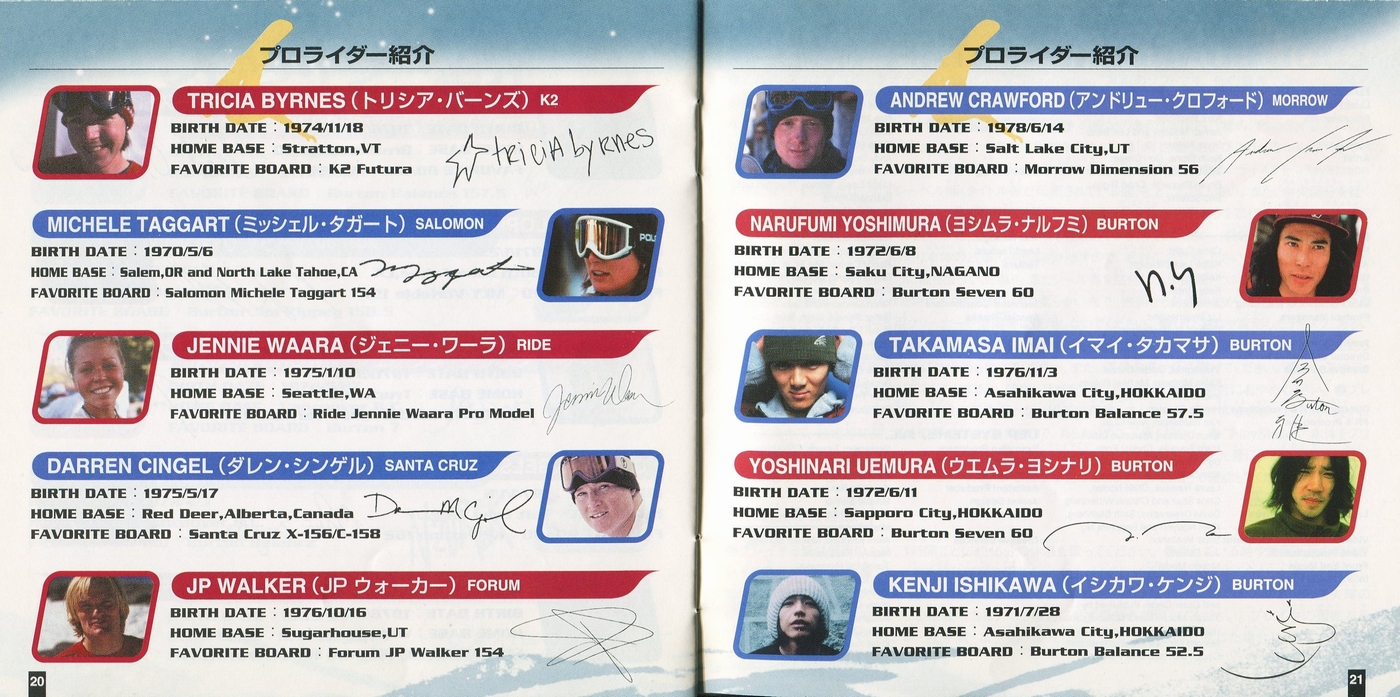 プロライダー紹介
TRICIA BYRNES（トリシア・バーンズ）K2
BIRTH DATE：1974/11/18
HOME BASE：Stratton,VT
FAVORITE BOARD：K2 Futura
tricia byrnes
MICHELE TAGGART（ミッシェル・タガート）SALOMON
BIRTH DATE：1970/5/6
HOME BASE：Salem,OR and North Lake Tahoe,CA
FAVORITE BOARD：Salomon Michele Taggart 154
JENNIE WAARA（ジェニー・ワーラ）RIDE
BIRTH DATE：1975/1/10
HOME BASE：Seattle,WA
FAVORITE BOARD：Ride Jennie Waara Pro Model
DARREN CINGEL（ダレン・シンゲル）SANTA CRUZ
BIRTH DATE：1975/5/17
HOME BASE：Red Deer,Alberta,Canada
FAVORITE BOARD：Santa Cruz X-156/C-158
JP WALKER（JP ウォーカー）FORUM
BIRTH DATE：1976/10/16
HOME BASE：Sugarhouse,UT
FAVORITE BOARD：Forum JP Walker 154
20
プロライダー紹介
ANDREW CRAWFORD（アンドリュー・クロフォード）MORROW
BIRTH DATE：1978/6/14
HOME BASE：Salt Lake City,UT
FAVORITE BOARD：Morrow Dimension 56
NARUFUMI YOSHIMURA（ヨシムラ・ナルフミ）BURTON
BIRTH DATE：1972/6/8
HOME BASE：Saku City,NAGANO
FAVORITE BOARD：Burton Seven 60
n.y
TAKAMASA IMAI（イマイ・タカマサ）BURTON
BIRTH DATE：1976/11/3
HOME BASE：Asahikawa City,HOKKAIDO
FAVORITE BOARD：Burton Balance 57.5
YOSHINARI UEMURA（ウエムラ・ヨシナリ）BURTON
BIRTH DATE：1972/6/11
HOME BASE：Sapporo City,HOKKAIDO
FAVORITE BOARD：Burton Seven 60
KENJI ISHIKAWA（イシカワ・ケンジ）BURTON
BIRTH DATE：1971/7/28
HOME BASE：Asahikawa City,HOKKAIDO
FAVORITE BOARD：Burton Balance 52.5
21